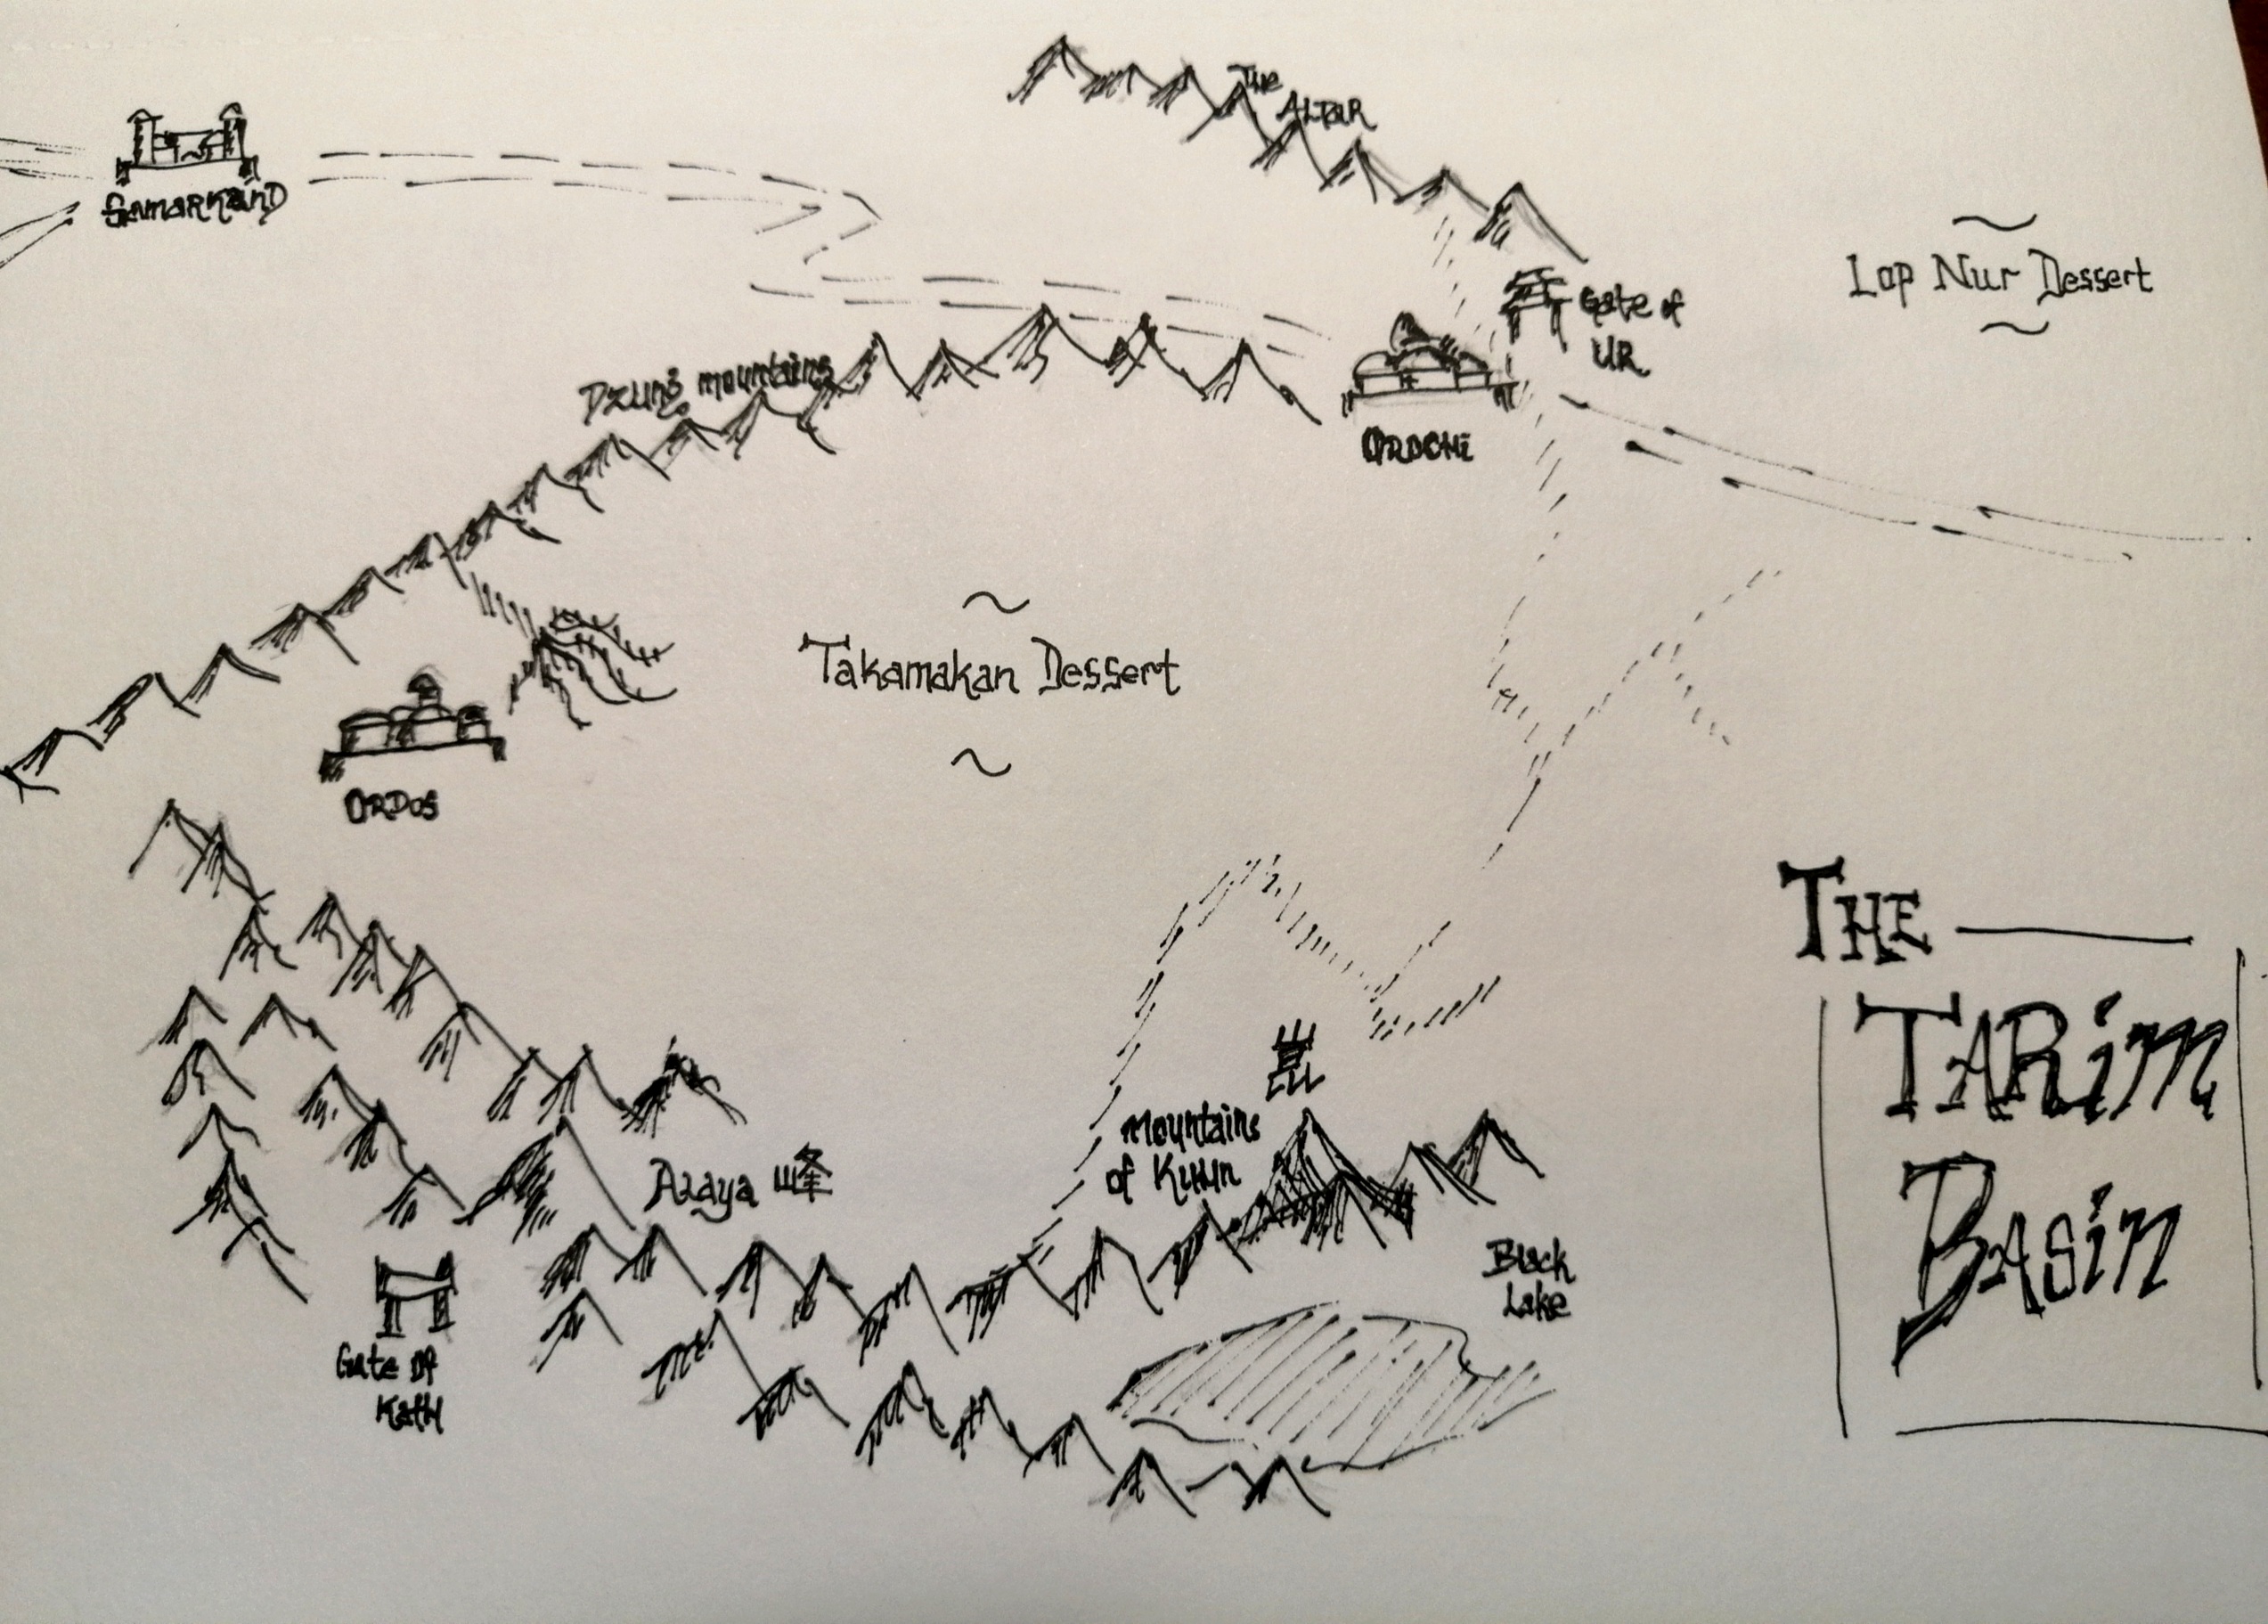 The
ALTAR
SAMARKAND
Lop Nur Dessert
Gate of
UR
Dzung mountains
OROCHI
Takamakan Dessert
ORDOS
THE
TARim
BAsin
Mountains
of KUUN
Alaya 峰
Black
Lake
Gate OF